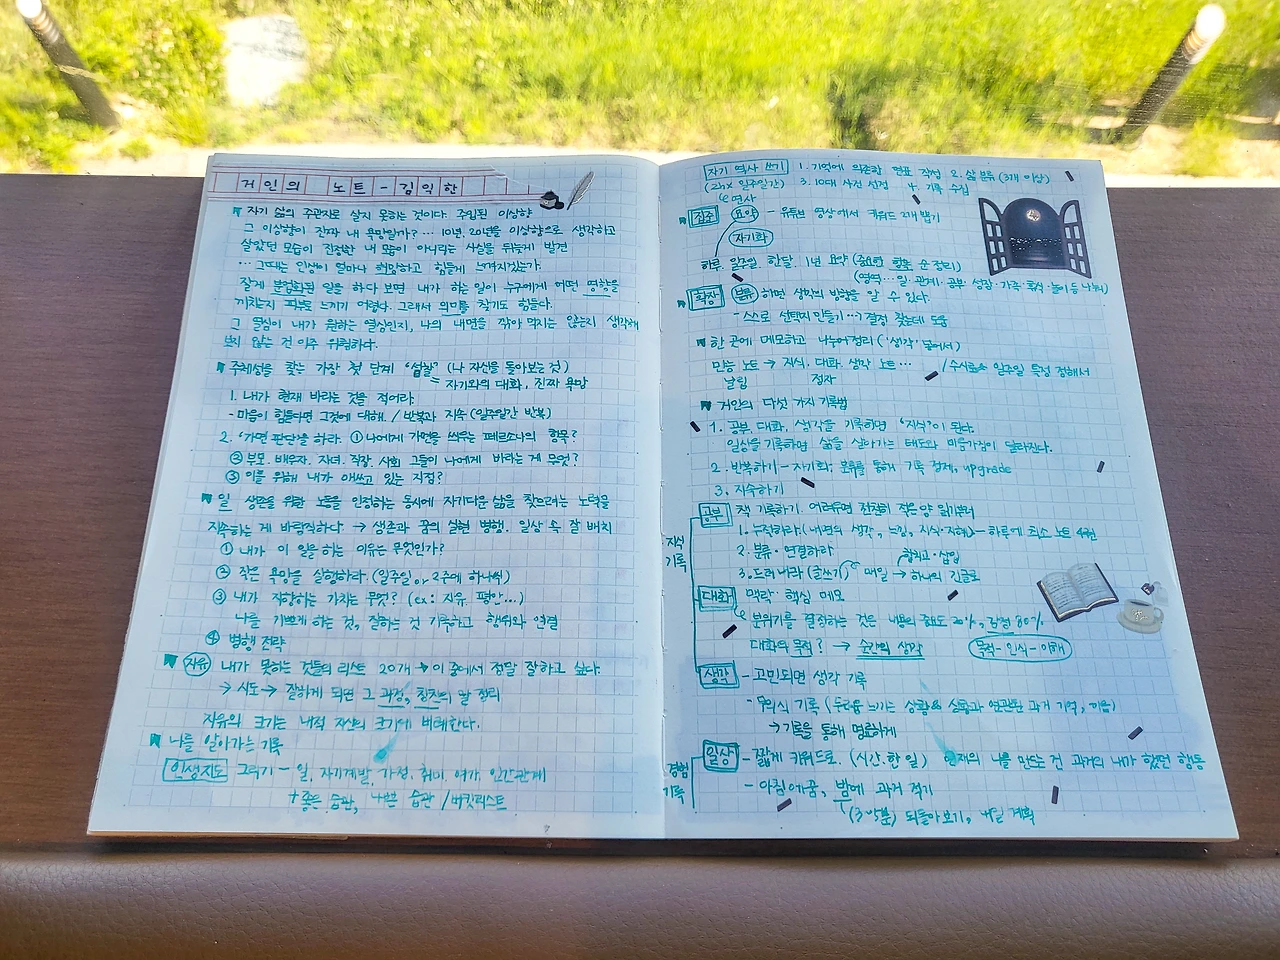 거인의 노트 - 김익한
자기 삶의 주관자로 살지 못하는 것이다. 주입된 이상향
그 이상향이 진짜 내 욕망일까? … 10년, 20년을 이상향으로 생각하고
살았던 모습이 진정한 내 모습이 아니라는 사실을 뒤늦게 발견
… 그때는 인생이 얼마나 허망하고 힘들게 느껴지겠는가.
잘게 분업화된 일을 하다 보면 내가 하는 일이 누구에게 어떤 영향을
끼치는지 피부로 느끼기 어렵다. 그래서 의미를 찾기도 힘들다.
그 열심이 내가 원하는 열심인지, 나의 내면을 깎아 먹지는 않는지 생각해
보지 않는 건 아주 위험하다.
주체성을 찾는 가장 첫 단계 "성찰" (나 자신을 돌아보는 것)
자기와의 대화, 진짜 욕망
1. 내가 현재 바라는 것을 적어라.
- 마음이 힘들다면 그것에 대해. / 반복과 지속 (일주일간 반복)
2. '가면 판단'을 하라. ① 나에게 가면을 씌우는 페르소나의 항목?
② 부모. 배우자. 자녀. 직장. 사회 그들이 나에게 바라는 게 무엇?
③ 이를 위해 내가 애쓰고 있는 지점?
일 생존을 위한 노동을 인정하는 동시에 자기다운 삶을 찾으려는 노력을
지속하는 게 바람직하다 → 생존과 꿈의 실현 병행. 일상 속 잘 배치
① 내가 이 일을 하는 이유는 무엇인가?
② 작은 욕망을 실행하라. (일주일 or 2주에 하나씩)
③ 내가 지향하는 가치는 무엇? (ex: 자유, 평안…)
나를 기쁘게 하는 것, 잘하는 것 기록하고 행위와 연결
④ 병행 전략
자유 내가 못하는 것들의 리스트 20개 → 이 중에서 정말 잘하고 싶다.
→ 시도 → 잘하게 되면 그 과정, 칭찬의 말 정리
자유의 크기는 내적 자신의 크기에 비례한다.
나를 알아가는 기록
인생지도 그리기 - 일, 자기계발, 가정, 취미, 여가, 인간관계
+ 좋은 습관, 나쁜 습관 / 버킷리스트
자기 역사 쓰기 1. 기억에 의존한 연표 작성 2. 삶 분류 (3개 이상)
(2h x 일주일간) 3. 10대 사건 선정 4. 기록 수집
연사
집중 요약 - 유튜브 영상에서 키워드 2개 뽑기
자기화
하루. 일주일. 한달. 1년 요약 (중요한 항목 순 정리)
(영역… 일. 관계. 공부. 성장. 가족. 휴식. 놀이 등 나누기)
확장 분류 하면 생각의 방향을 알 수 있다.
- 스스로 선택지 만들기 …→ 결정 찾는데 도움
한 곳에 메모하고 나누어 정리 ('생각' 덧붙여서)
만능 노트 → 지식. 대화. 생각 노트 … / 수시로 일주일 특정 정해서
날림 정자
거인의 다섯 가지 기록법
1. 공부. 대화, 생각을 기록하면 '지식'이 된다.
일상을 기록하면 삶을 살아가는 태도와 마음가짐이 달라진다.
2. 반복하기 - 자기화. 분류를 통해 기록 정제, upgrade
3. 지속하기
지식 기록
공부 책 기록하기. 어려우면 천천히 적은 양 읽기부터
1. 누적하라. (내면의 생각, 느낌, 지식·지혜) - 하루에 최소 노트 4권
2. 분류·연결하라
합치고·삽입
3. 드러내라 (글쓰기) 매일 → 하나의 긴글로
대화 맥락·핵심 메모
분위기를 결정하는 것은 내용의 중요도 20%, 감정 80%
대화의 목적? → 순간의 생각 목적-인식-이해
생각 - 고민되면 생각 기록
- 무의식 기록 (두려움 느끼는 상황 & 실황과 연관된 과거 기억, 마음)
→ 기록을 통해 명료하게
경험 기록
일상 - 짧게 키워드로. (시간. 한 일) 현재의 나를 만드는 건 과거의 내가 했던 행동
- 아침에 꿈, 밤에 과거 적기
(3~5분) 되돌아보기, 내일 계획